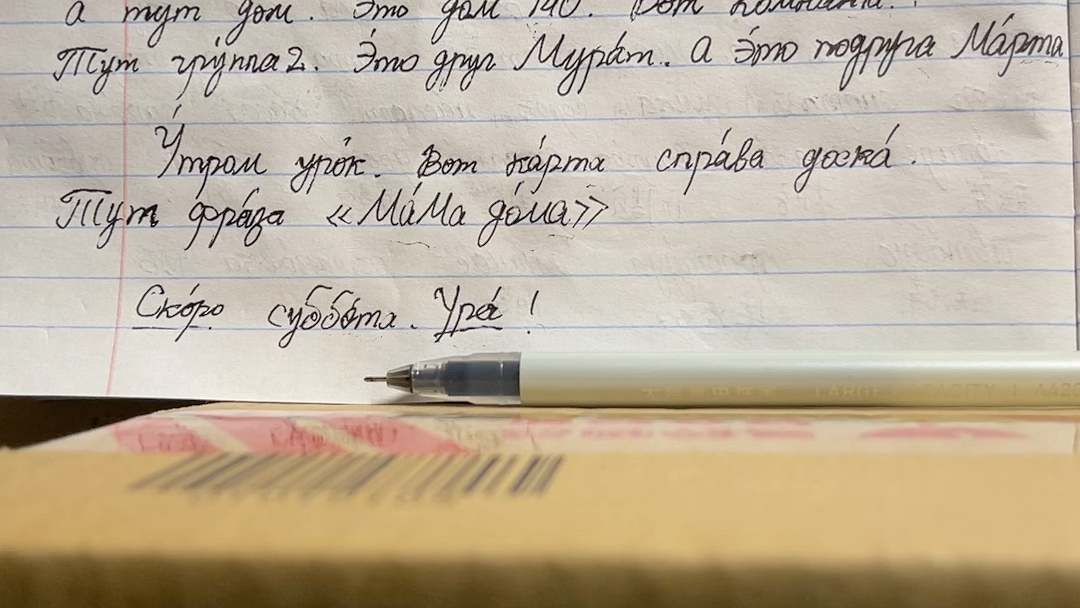 а тут дом. Это дом 140. Вот комната.
Тут гру́ппа 2. Э́то друг Мура́т. а э́то подруга Ма́рта
У́тром уро́к. Вот ка́рта спра́ва доска́.
Тут фра́за «Ма́Ма до́ма»
Ско́ро суббо́та. Ура́!
LARGE CAPACITY